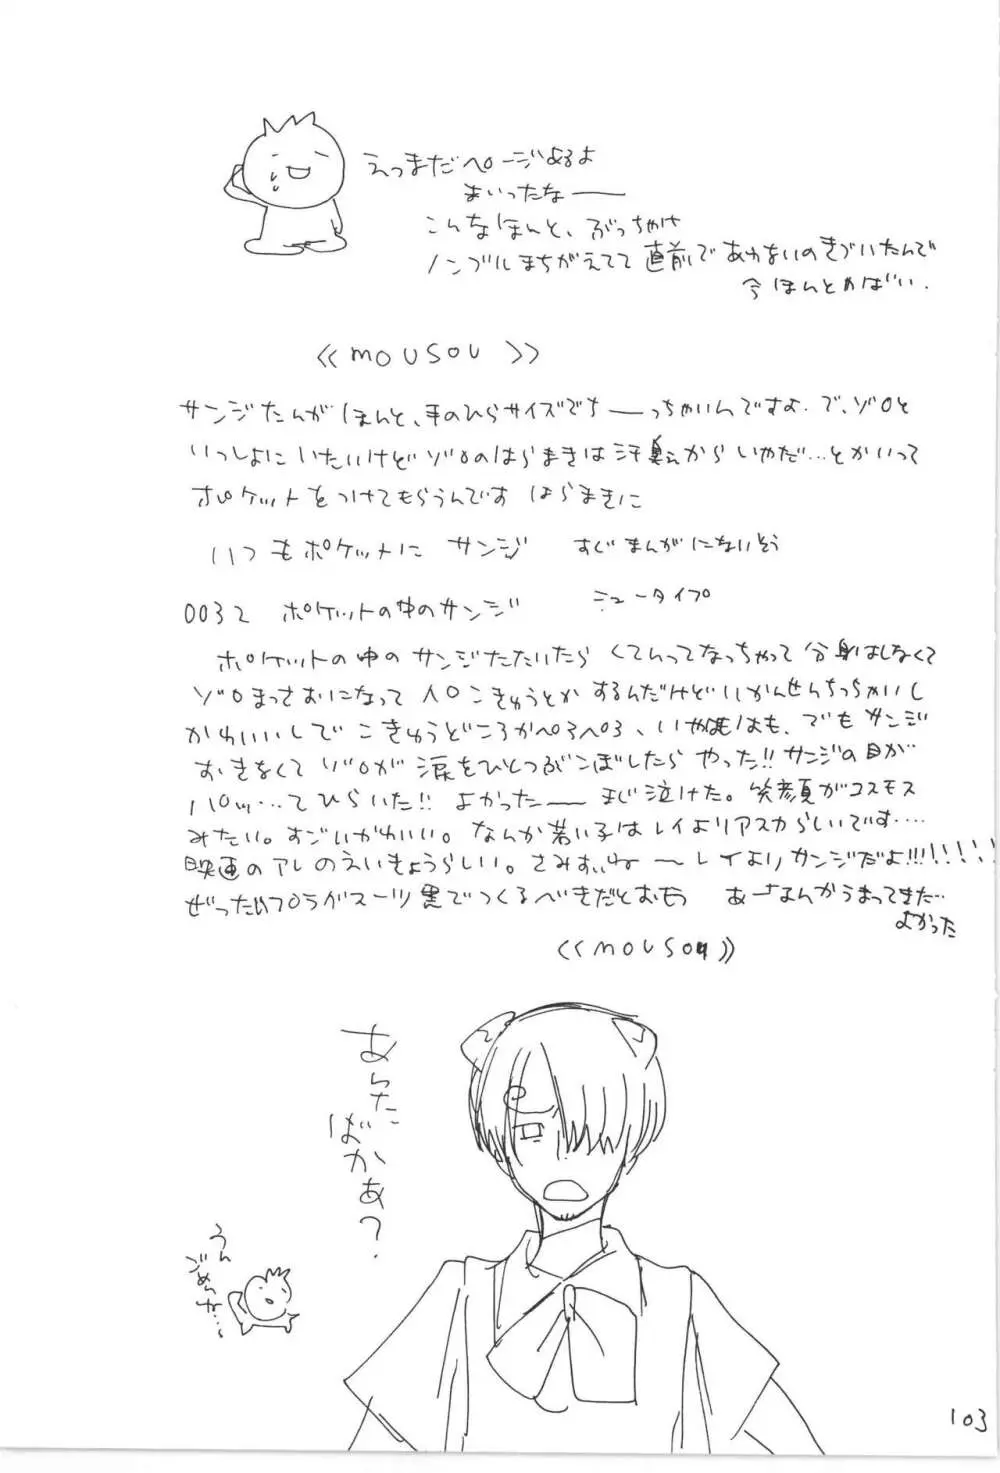 えっまだページあるよ
まいったなー
こんなほんと、ぶっちゃけ
ノンブルまちがえてて直前であわないのきづいたんで
今ほんとやばい.
《mousou》
サンジたんがほんと、手のひらサイズでちーっちゃいんですよ.で、ゾロと
いっしょにいたいけどゾロのはらまきは汗臭えからいやだ…とかいって
ポケットをつけてもらうんです はらまきに
いつもポケットに サンジ すぐまんがにないそう
0032 ポケットの中のサンジ ニュータイプ
ポケットの中のサンジたたいたら くてんってなっちゃって 分身はしなくて
ゾロまっさおになって 人口こきゅうとか するんだけど いかんせんちっちゃいし
かわいいしで こきゅうどころかぺろぺろ、いやはもはも、でもサンジ
おきなくて ゾロが 涙をひとつぶこぼしたら やった!!サンジの目が
パッ…てひらいた!! よかったー まじ泣けた。笑顔がコスモス
みたい。すごいかわいい。なんか若い子はレイよりアスカらしいです…
映画のアレのえいきょうらしい。さみすぃね ～レイよりサンジだよ!!!!!!!!
ぜったいプラグスーツ黒でつくるべきだとおもう あーなんかうまってきた…
よかった
《mousou》
あんた
ばかぁ?
うん
ごめんな…
103